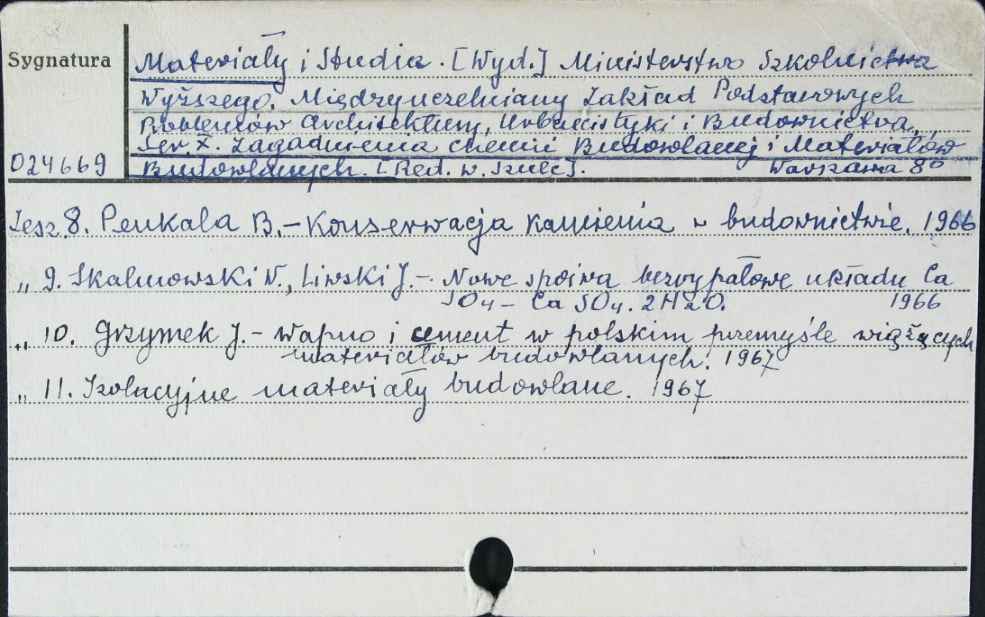 Sygnatura
Materiały i Studia. [Wyd.] Ministerstwo Szkolnictwa
Wyższego. Międzyuczelniany Zakład Podstawowych
Problemów Architektury, Urbanistyki i Budownictwa.
Ser. X. Zagadnienia chemii Budowlanej i Materiałów
024669 Budowlanych. [Red. W. Szulc]. Warszawa 8°
Zesz. 8. Penkala B. - Konserwacja kamienia w budownictwie. 1966
„ 9. Skalmowski W., Liwski J. - Nowe spoiwa bezwypałowe układu Ca
SO4 - Ca SO4. 2H2O. 1966
„ 10. Grzymek J. - Wapno i cement w polskim przemyśle wiążących
materiałów budowlanych. 1967
„ 11. Izolacyjne materiały budowlane. 1967